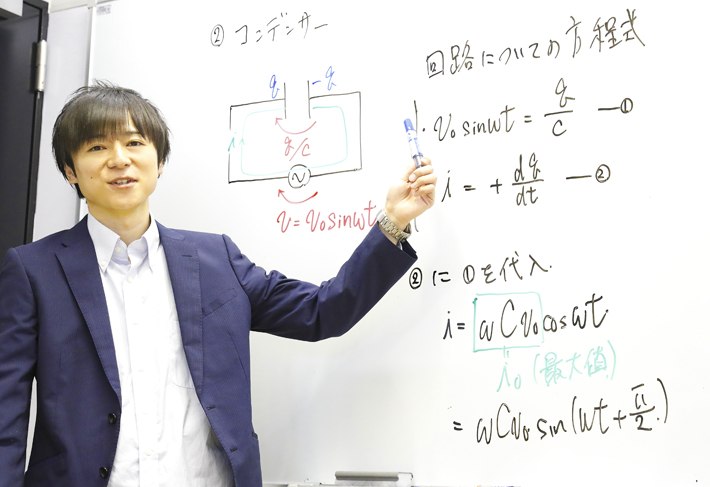 ② コンデンサー
q -q
i
q/c
v=v₀sinωt
回路についての方程式
・v₀sinωt = q/c ー①
i = + dq/dt ー②
② に ① を代入.
i = ωCv₀cosωt.
i₀ (最大値)
= ωCv₀ sin(ωt + π/2.)